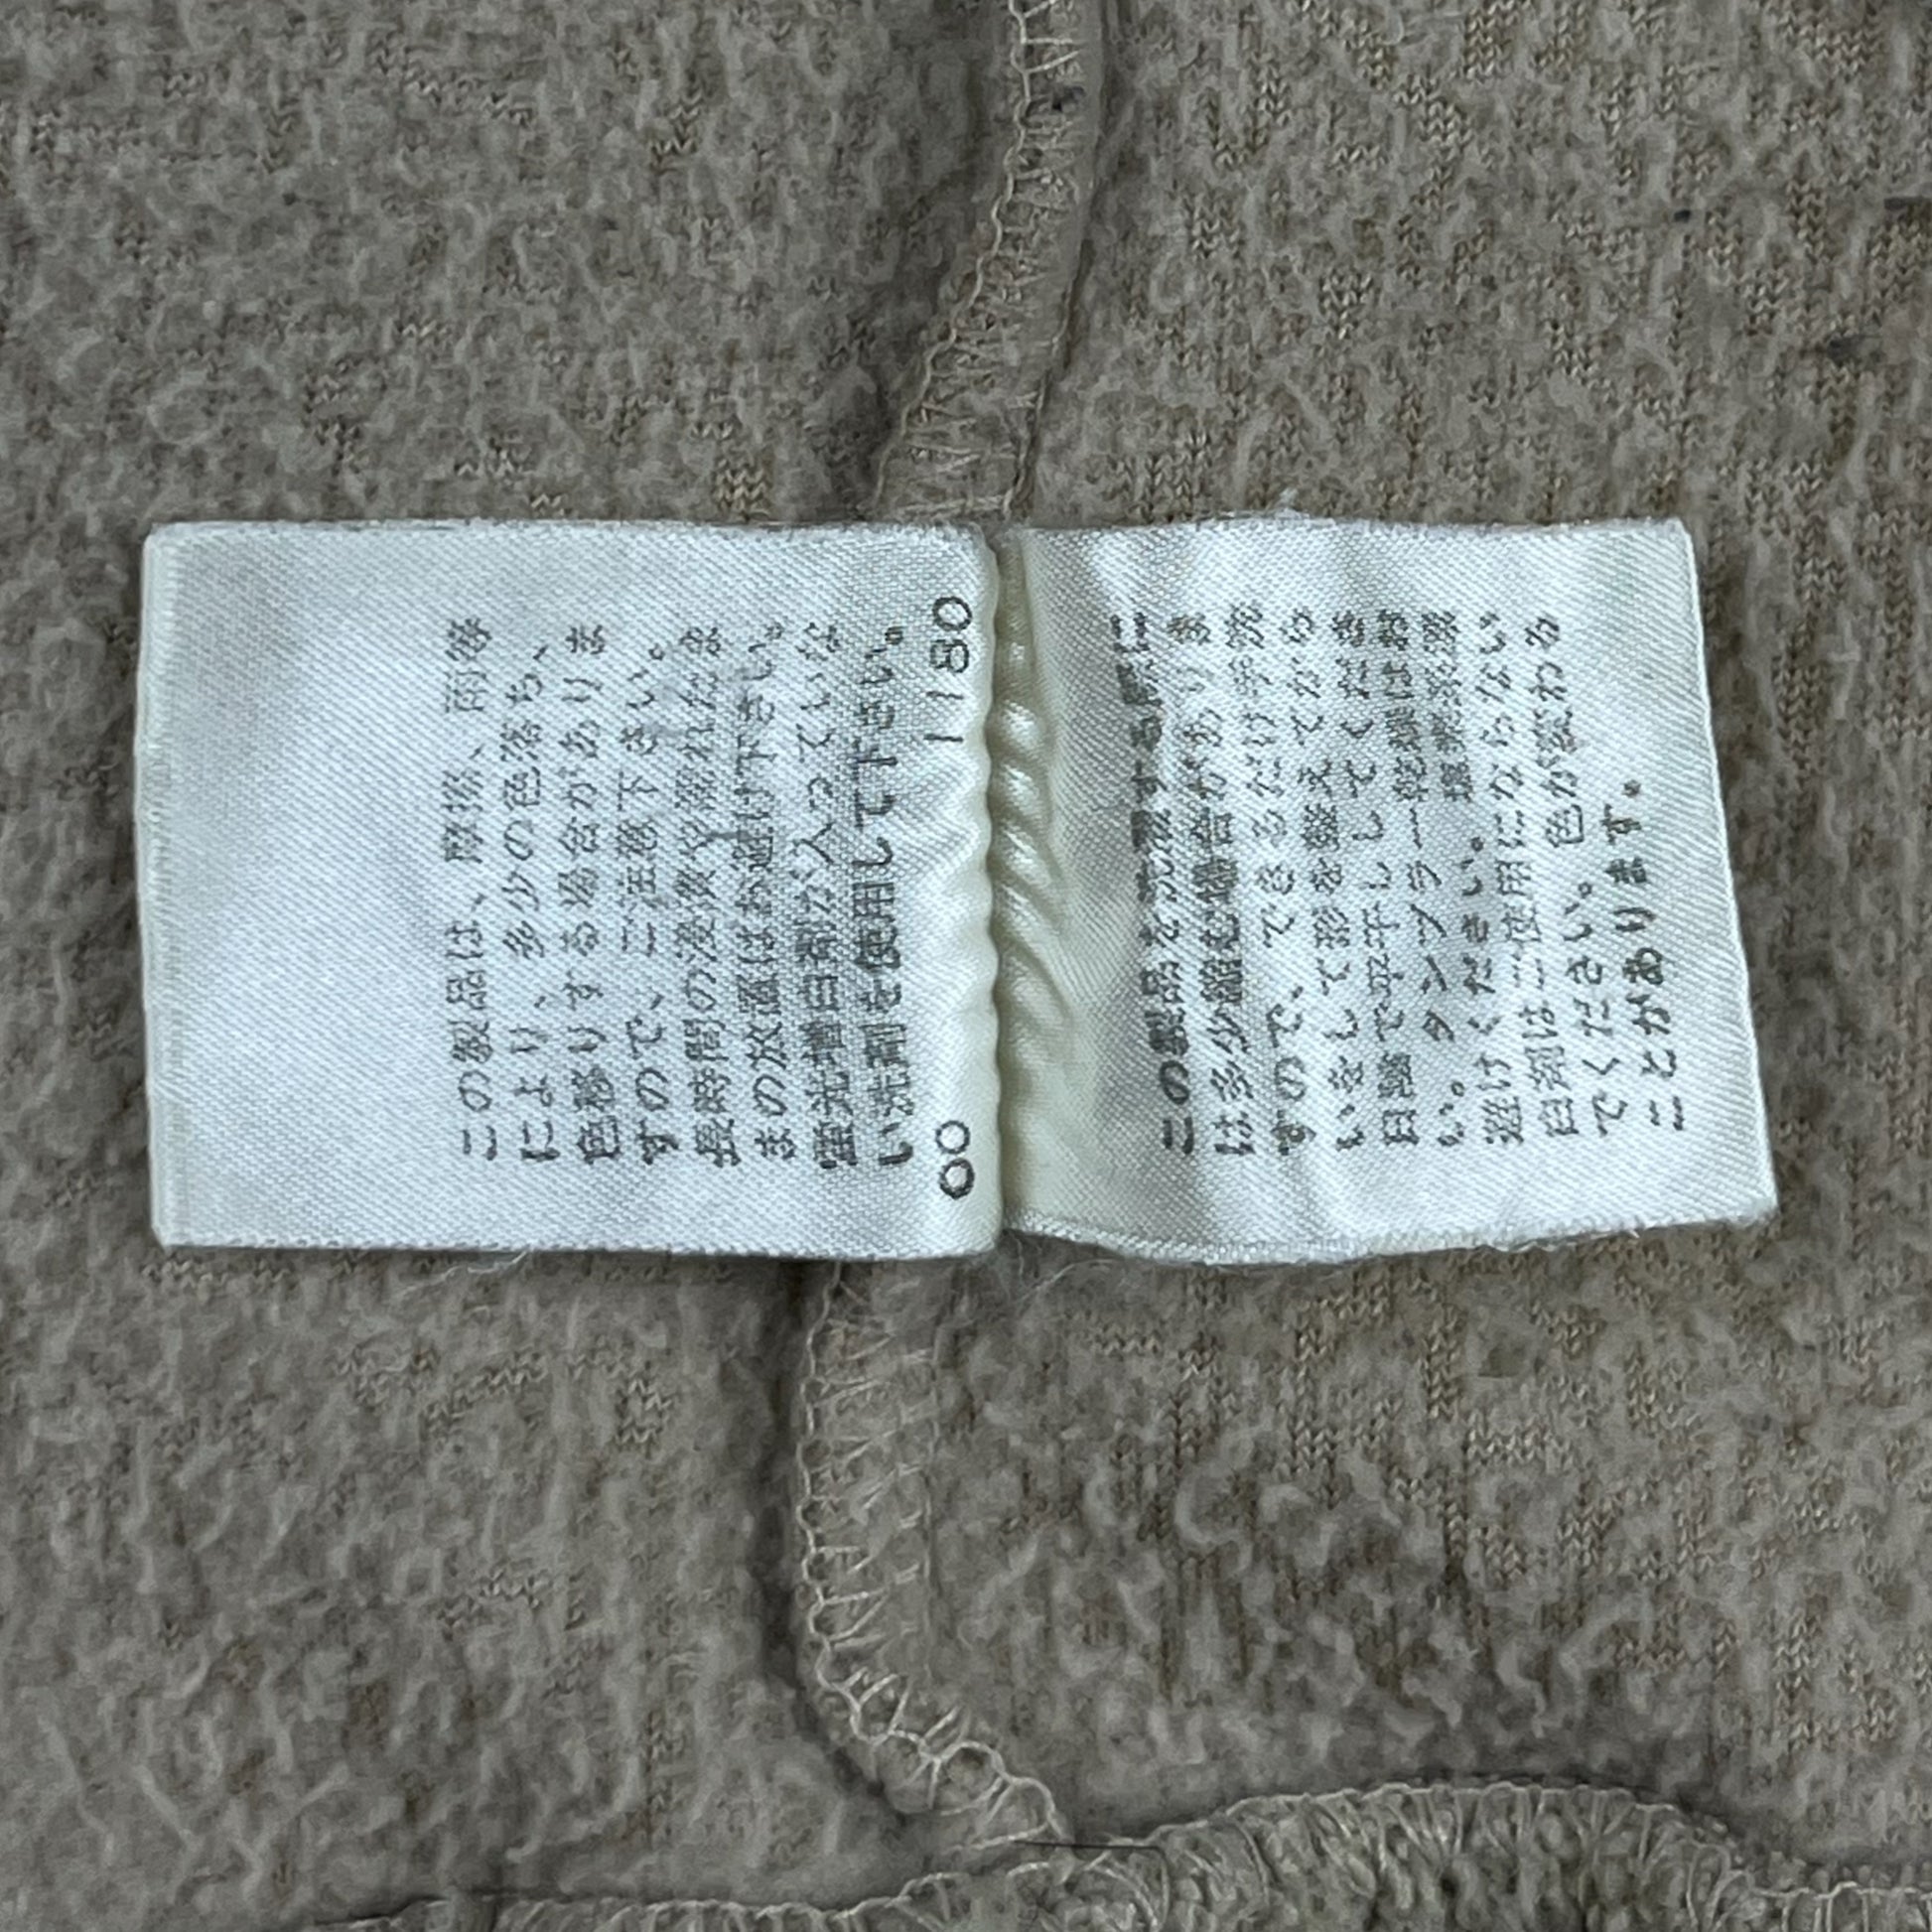 この製品は、摩擦、雨等
により、多少の色落ち、
色移りする場合がありま
すので、ご注意下さい。
長時間の浸漬や濡れたま
まの放置はお避け下さい。
蛍光増白剤が入っていな
い洗剤を使用して下さい。
00 1180
この製品を洗濯する際に
は多少縮む場合がありま
すので、できるだけ手洗
いをして形を整えてから
日陰で平干ししてくださ
い。タンブラー乾燥はお
避けください。蛍光漂
白剤はご使用にならない
でください。色が変わる
ことがあります。